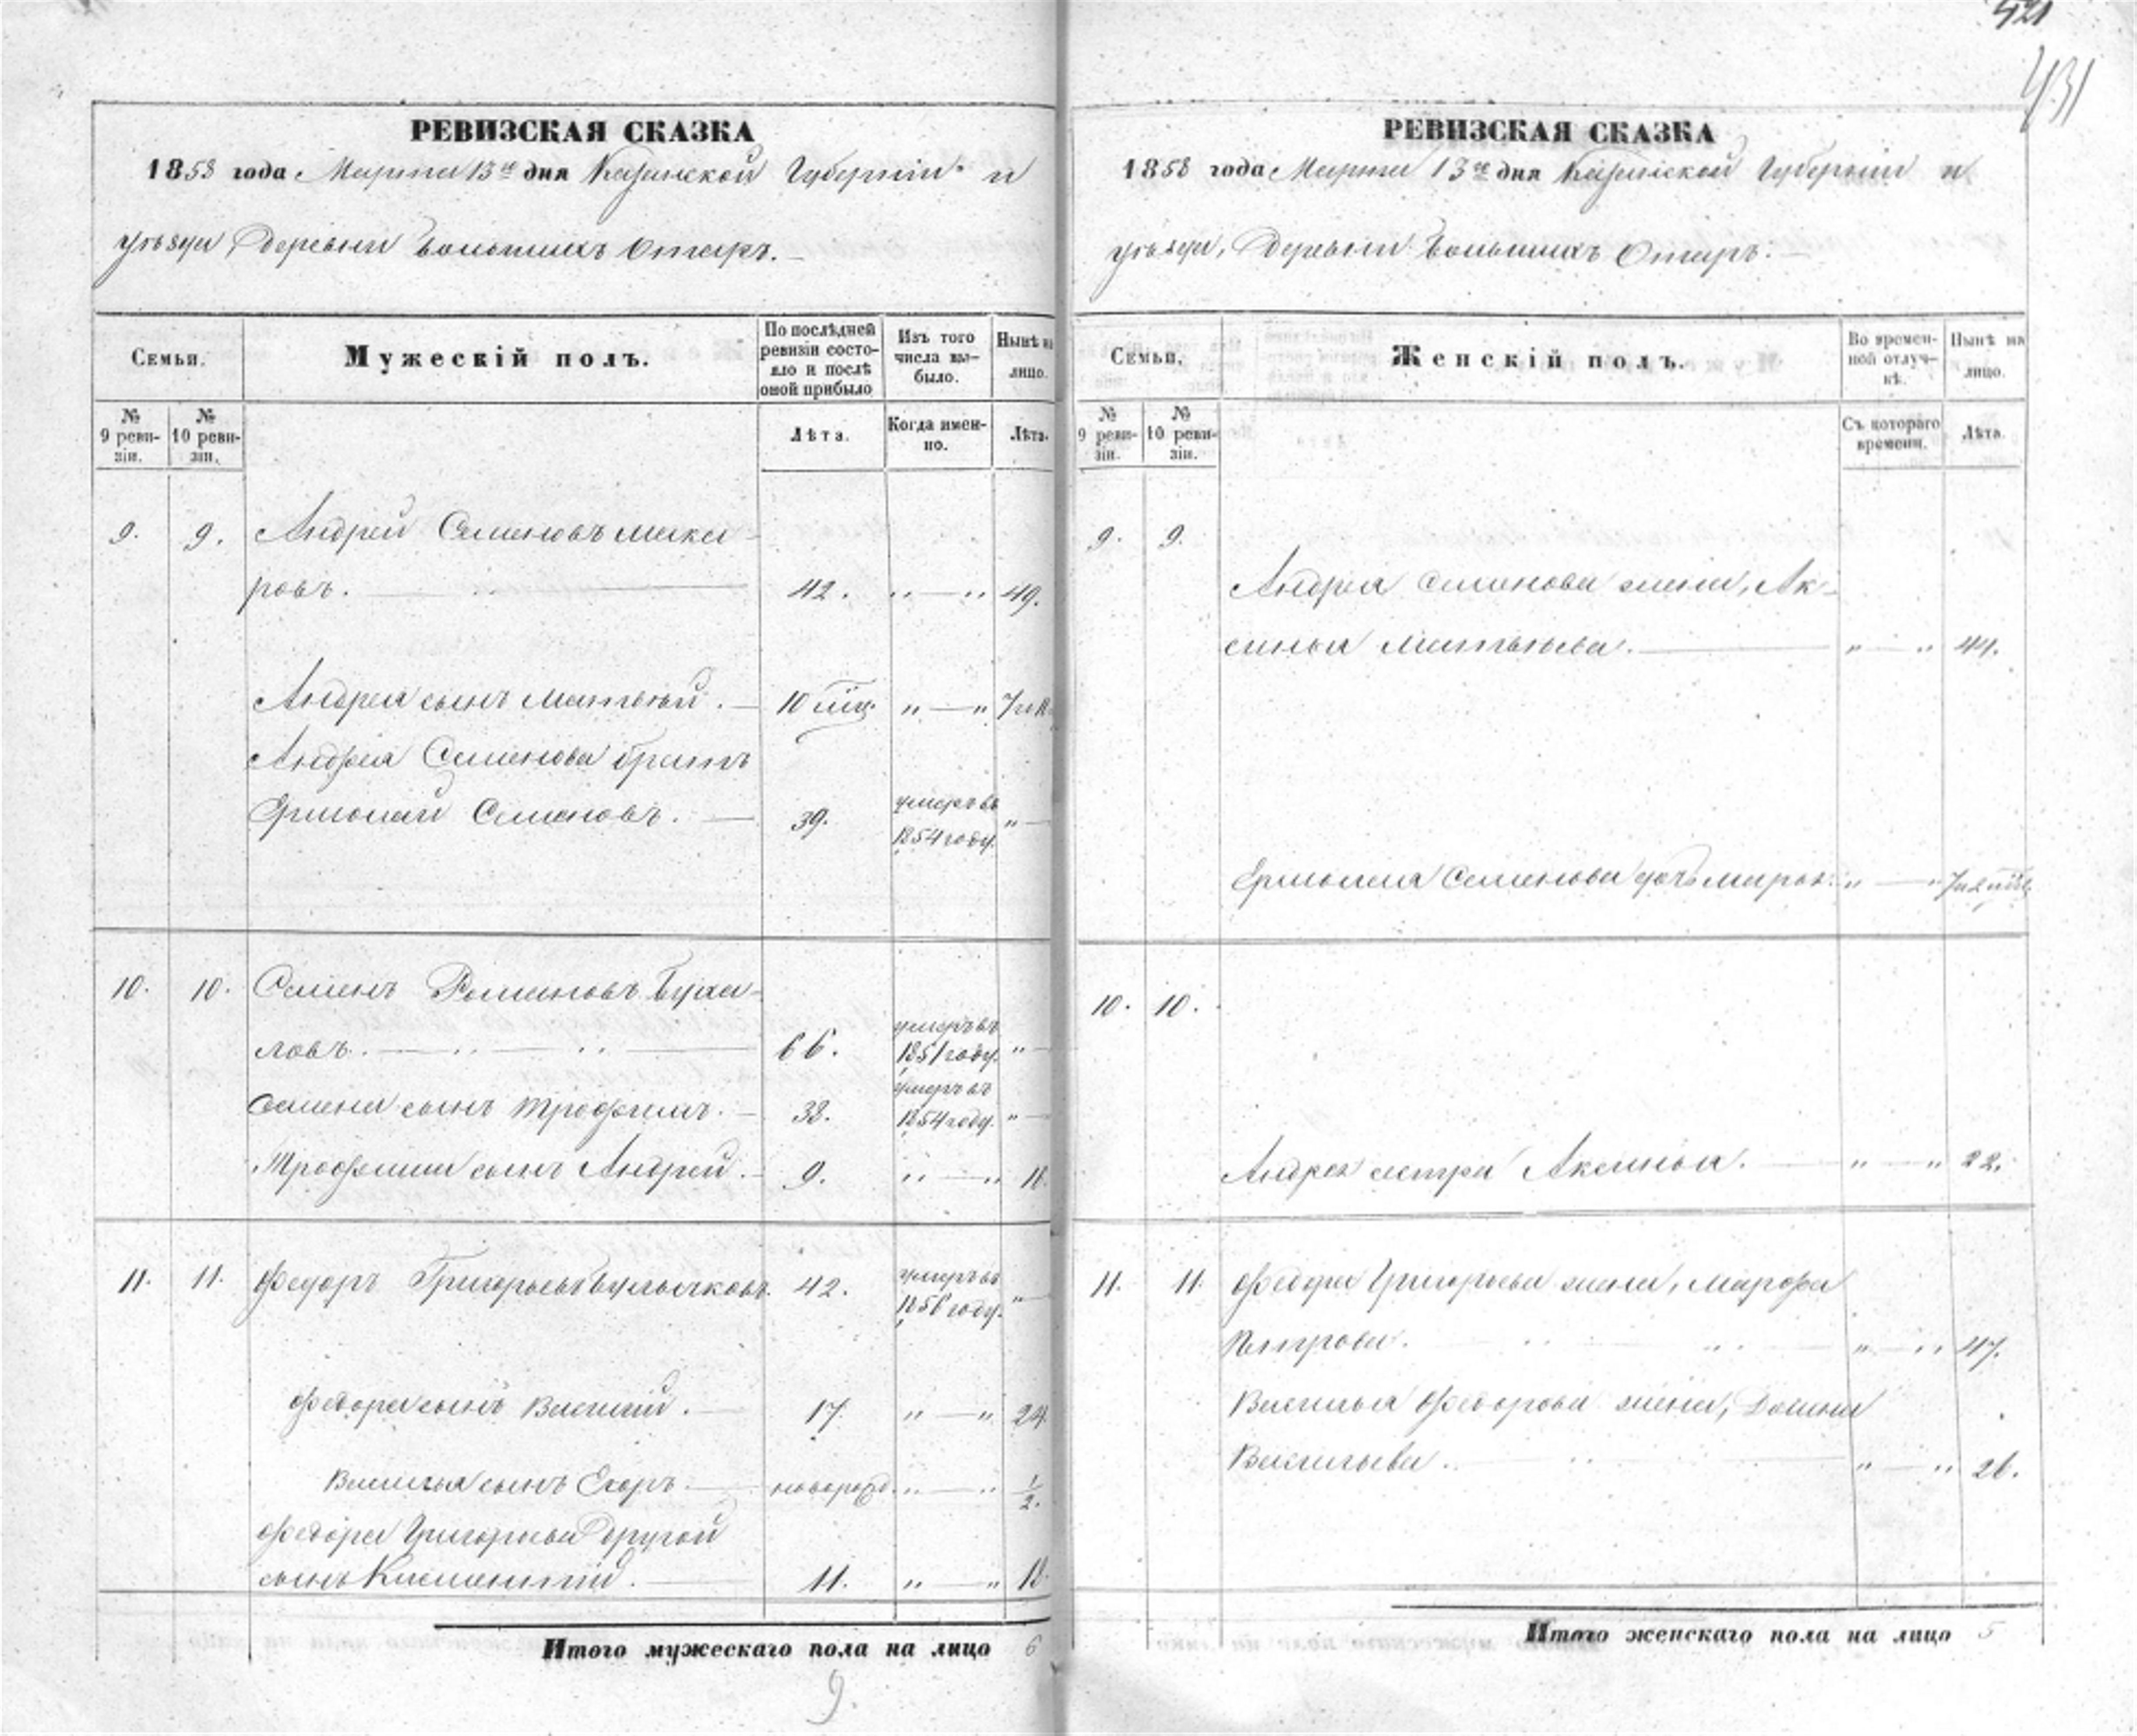 521
431
РЕВИЗСКАЯ СКАЗКА
1858 года Марта 13го дня Казанской Губерніи и
уѣзда, Деревни Большихъ Отаръ.
По послѣдней ревизіи состояло и послѣ оной прибыло
Изъ того числа выбыло.
Нынѣ на лицо.
Семьи.
Мужескій полъ.
№ 9 реви-зіи.
№ 10 реви-зіи.
Лѣта.
Когда имен-но.
Лѣта.
9. 9. Андрей Семеновъ Мака-
ровъ. 42. „ — „ 49.
Андрея сынъ Матвѣй. 10 „ — „
Андрея Семенова братъ
Ермолай Семеновъ. 39. умеръ въ 1854 году. „
10. 10. Семенъ Романовъ
ловъ. 66. умеръ въ 1851 году. „
Семена сынъ Трофимъ. 38. умеръ въ 1854 году. „
Трофима сынъ Андрей. 9. „ — „ 16
11. 11. Федоръ Григорьевъ Булычковъ. 42. умеръ въ 1856 году. „
Федора сынъ Василій. 17. „ — „ 24.
Василья сынъ Егоръ. новорожд. „ — „ 1/2.
Федора Григорьева другой
сынъ 11. „ — „ 18.
Итого мужескаго пола на лицо 6
9.
РЕВИЗСКАЯ СКАЗКА
1858 года Марта 13го дня Казанской Губерніи и
уѣзда, Деревни Большихъ Отаръ.
Семьи.
Женскій полъ.
Во времен-ной отлуч-кѣ.
Нынѣ на лицо.
№ 9 реви-зіи.
№ 10 реви-зіи.
Съ котораго времени.
Лѣта.
9. 9.
Андрея Семенова жена, Ак-
синья Матвѣева. „ — „ 44.
Ермолая Семенова дочь „ — „
10. 10.
Андрея сестра Аксинья. „ — „ 22.
11. 11. Федора Григорьева жена, Марфа
Петрова. „ — „ 47.
Василья Федорова жена, Домна
Васильева. „ — „ 26.
Итого женскаго пола на лицо 5